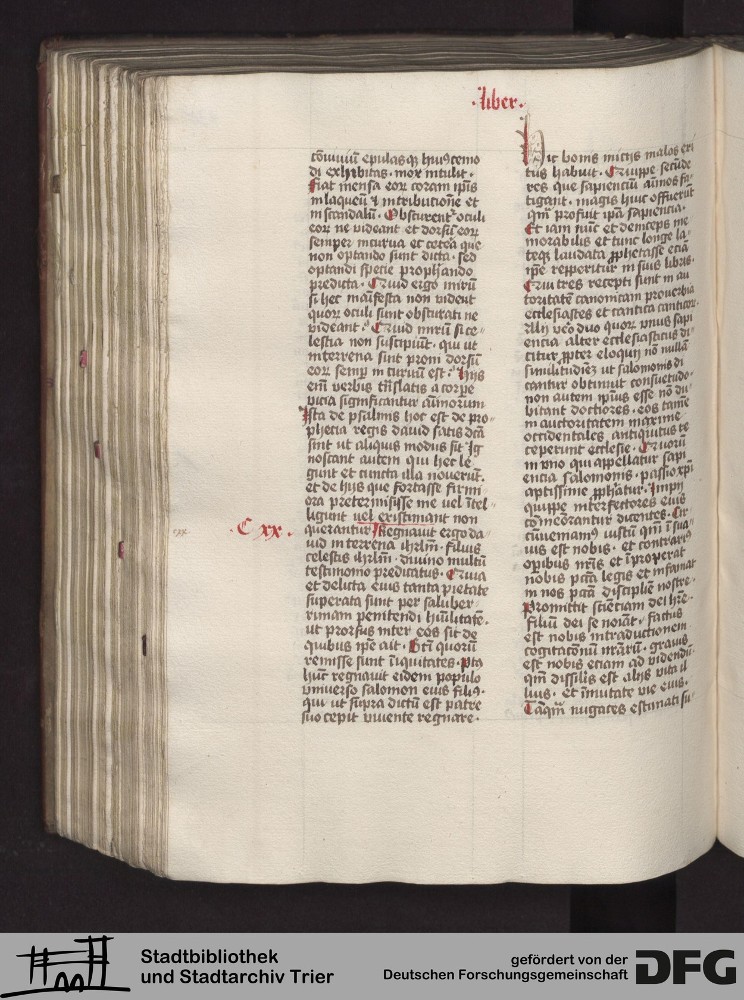 ·liber·
cōuiuiū epulas qȝ huiꝰcemo
di exhibitas · mox intulit ·
Fiat mensa eoꝝ coram ip̄is
in laqueū ⁊ in tribucione et
in scandalū · Obscurent͛ oculi
eoꝝ ne videant et dorsū eoꝝ
semper incurua et cetera que
non optando sunt dicta · sed
optandi specie prophando
predicta · Quid ergo mirū
si hec māifesta non vident
quoꝝ oculi sunt obscurati ne
videant · Quid mirū si ce-
lestia non suscipiūt · qui ut
in terrena sint proni dorsū
eoꝝ semp̄ incuruū est · Hijs
em̄ verbis trāslatis a corpe
vicia significantur aīmorum
Ista de psalmis hoc est de pro-
phecia regis dauid satis dc̄a
sint ut aliquis modus sit Ig
noscant autem qui hec le
gunt et cuncta illa nouerūt ·
et de hijs que fortasse firmi
ora pretermisisse me vel ītel-
ligunt vel existimant non
querantur Regnauit ergo da-
C xx ·
uid in terrena ihrlm̄ · filius
celestis ihrlm̄ · diuino multū
testimonio predicatus · Quia
et delicta eius tanta pietate
superata sunt per saluber-
rimam penitendi hūilitatē ·
ut prorsus inter eos sit de
quibus ip̄e ait · Btī quorū
remisse sunt īiquitates · Pꝰ
hūc regnauit eidem populo
vniuerso salomon eius filiꝰ ·
qui ut supra dictū est patre
suo cepit viuente regnare ·
Hic bonis inicijs malos exi
tus habuit · Quippe secūde
res que sapienciū aīmos fa-
tigant · magis huic offuerūt
qm̄ profuit ip̄a sapiencia ·
Et iam nūc et deinceps me
morabilis et tunc longe la-
teqȝ laudata · p̄phetasse eciā
ip̄e repperitur in suis libris ·
Qui tres recepti sunt in au
toritatē canonicam prouerbia
ecclesiastes et cantica canticoꝝ ·
Alij vero duo quoꝝ vnus sapi
encia alter ecclesiasticus di-
citur p̄pter eloquij nō nullā
similitudinē ut salomonis di
cantur obtinuit consuetudo ·
non autem ip̄ius esse nō du-
bitant doctiores · eos tamē
in auctoritatem maxime
occidentales antiquitus re
ceperunt ecclesie · Quorū
in vno qui appellatur sapi
encia salomonis · passio xp̄i
aptissime p̄phatur · Impij
quippe interfectores eius
cōmemorantur dicentes · Cir
cūueniamꝰ iustū qm̄ īsua-
uis est nobis · et contrariꝰ
operibus nr̄is et īproperat
nobis pc̄ca legis et infamat
in nos pc̄ca discipline nostre ·
Promittit scienciam dei hr̄e ·
filiū dei se noīat · factus
est nobis in traductionem
cogitationū nr̄arū · grauis
est nobis eciam ad videndū ·
qm̄ dissilis est alijs vita il
lius · et īmutate vie eius ·
Tāqm̄ nugaces estimati su
Stadtbibliothek
und Stadtarchiv Trier
gefördert von der
Deutschen Forschungsgemeinschaft
DFG